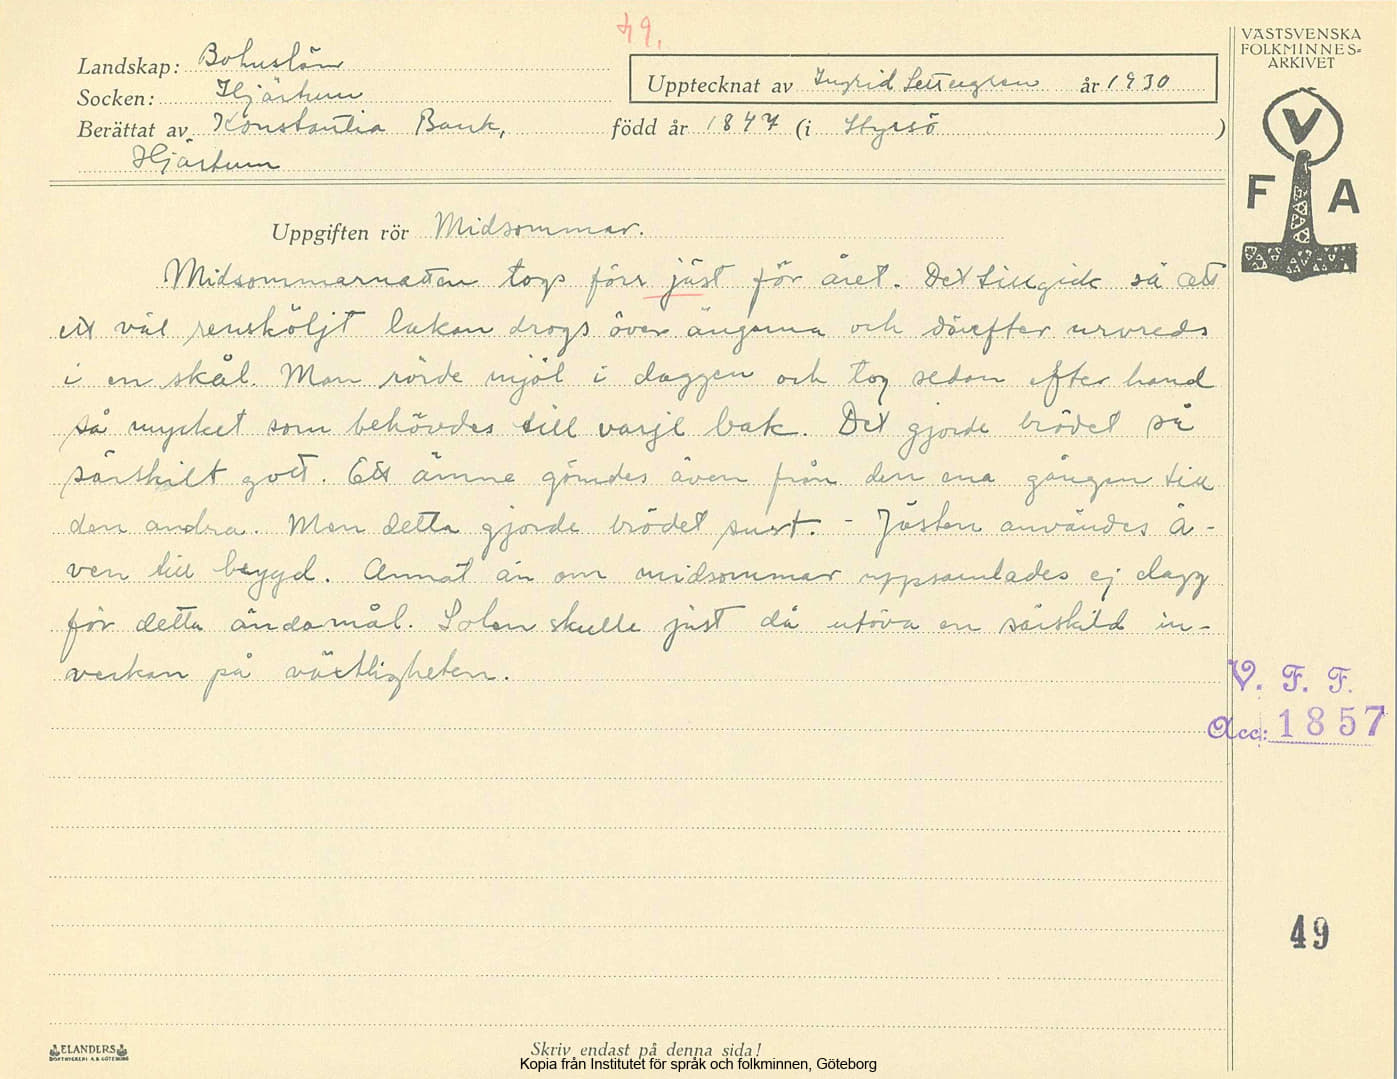 49.
VÄSTSVENSKA
FOLKMINNES-
ARKIVET
Landskap: Bohuslän
Upptecknat av Ingrid Settergren år 1930
Socken: Hjärtum
Berättat av Konstantia Bank, född år 1847 (i Styrsö )
Hjärtum
V
F A
Uppgiften rör Midsommar.
Midsommarnatten togs förr jäst för året. Det tillgick så att
ett väl rensköljt lakan drogs över ängarna och därefter urvreds
i en skål. Man rörde mjöl i daggen och tog sedan efter hand
så mycket som behövdes till varje bak. Det gjorde brödet så
särskilt gott. Ett ämne gömdes även från den ena gången till
den andra. Men detta gjorde brödet surt. - Jästen användes ä-
ven till brygd. Annat än om midsommar uppsamlades ej dagg
för detta ändamål. Solen skulle just då utöva en särskild in-
verkan på växtligheten.
V. F. F.
Acc: 1857
49
ELANDERS
BOKTRYCKERI A.B. GÖTEBORG
Skriv endast på denna sida!
Kopia från Institutet för språk och folkminnen, Göteborg